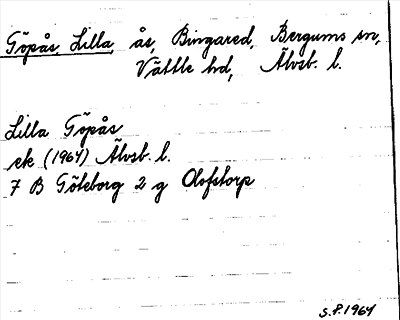 Göpås, Lilla, ås, Bingared, Bergums sn,
Vättle hd, Älvsb. l.
Lilla Göpås
ek (1964) Älvsb. l.
7 B Göteborg 2 g Olofstorp
S.P. 1964